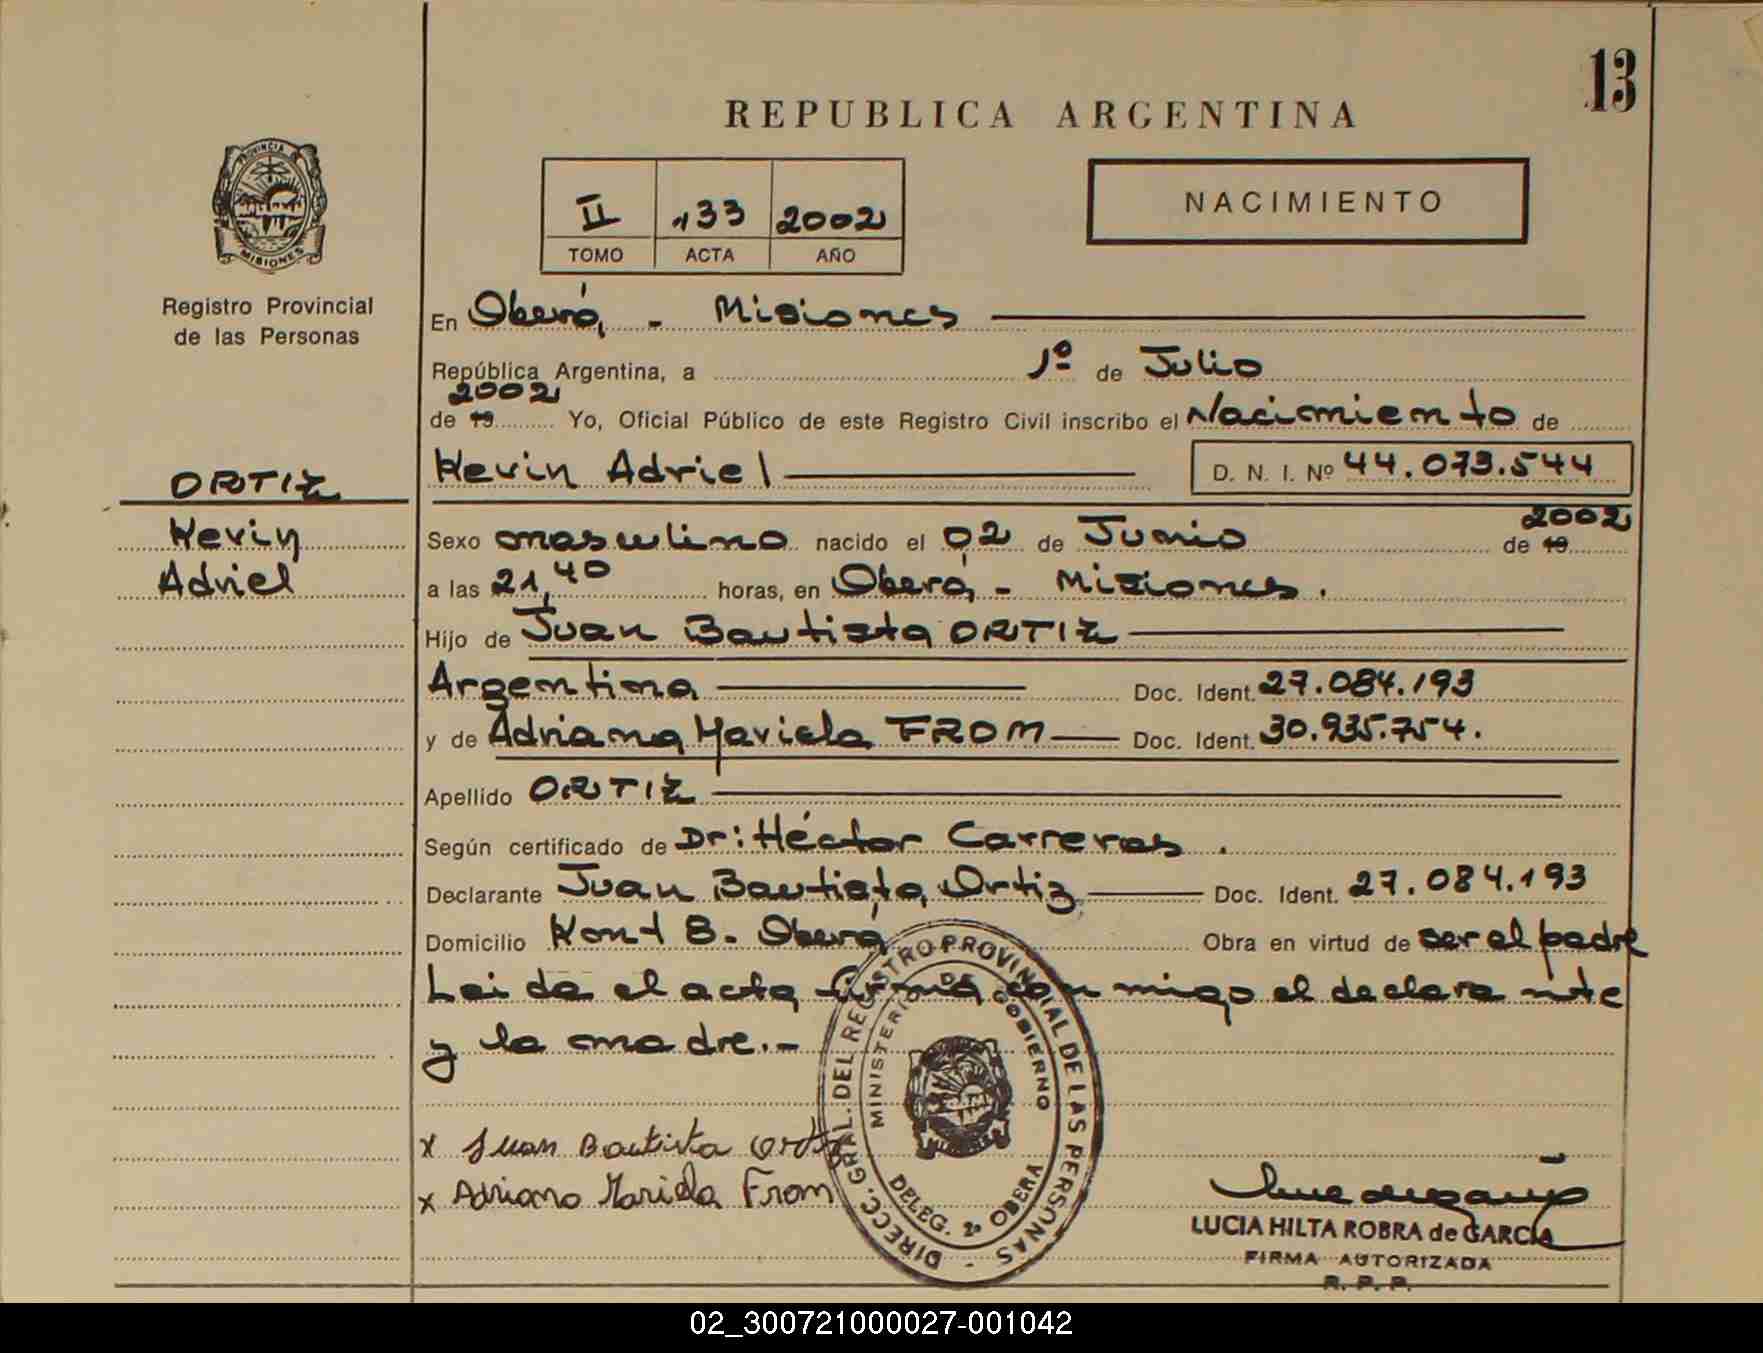 13
REPUBLICA ARGENTINA
PROVINCIA DE
MISIONES
II 133 2002
TOMO ACTA AÑO
NACIMIENTO
Registro Provincial
de las Personas
En Oberá, - Misiones
República Argentina, a 1º de Julio
2002
de 19 Yo, Oficial Público de este Registro Civil inscribo el Nacimiento de
Kevin Adriel D. N. I. Nº 44.073.544
ORTIZ
Kevin
Adriel
2002
Sexo masculino nacido el 02 de Junio de 19
a las 21,40 horas, en Oberá, - Misiones.
Hijo de Juan Bautista ORTIZ
Argentina Doc. Ident. 27.084.193
y de Adriana Mariela FROM Doc. Ident. 30.935.754.
Apellido ORTIZ
Según certificado de Dr: Héctor Carreras.
Declarante Juan Bautista Ortiz Doc. Ident. 27.084.193
Domicilio Kont 8. Oberá Obra en virtud de ser el padre
Leida el acta firma con migo el declara nte
y la madre.-
x Juan Bautista Ortiz
x Adriana Mariela From
DIRECC. GRAL. DEL REGISTRO PROVINCIAL DE LAS PERSONAS -
MINISTERIO DE GOBIERNO
DELEG. 2º OBERA
LUCIA HILTA ROBRA de GARCIA
FIRMA AUTORIZADA
R. P. P.
02_300721000027-001042